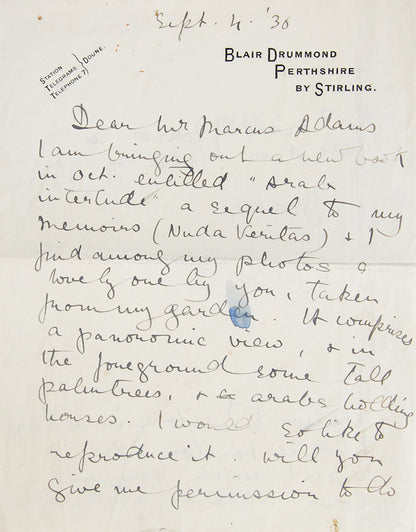 Sept. 4. '36
STATION
TELEGRAMS } DOUNE.
TELEPHONE 7
BLAIR DRUMMOND
PERTHSHIRE
BY STIRLING.
Dear Mr Marcus Adams
I am bringing out a new book
in Oct. entitled "Arab
interlude" a sequel to my
Memoirs (Nuda Veritas) & I
find among my photos a
lovely one by you, taken
from my garden. It comprises
a panoramic view, & in
the foreground some tall
palmtrees, & arabs holding
horses. I would so like to
reproduce it. Will you
give me permission to do